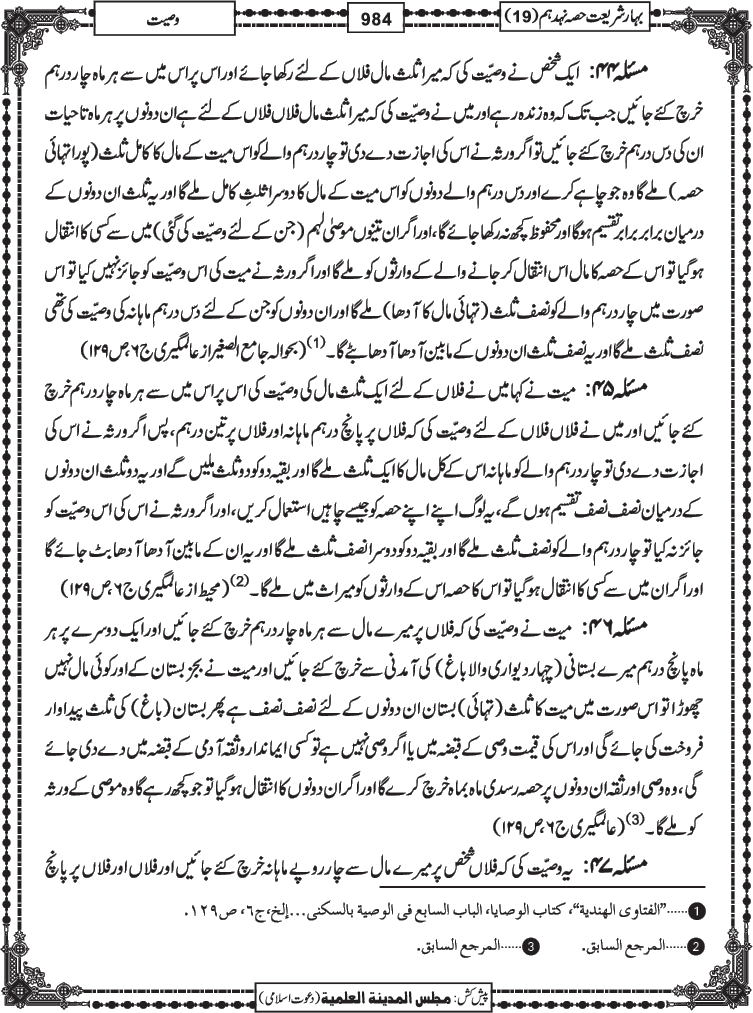 بہارِ شریعت حصہ نہدہم (19)
984
وصیت
مسئلہ ۴۴: ایک شخص نے وصیّت کی کہ میرا ثلث مال فلاں کے لئے رکھا جائے اور اس پر اس میں سے ہر ماہ چار درہم
خرچ کئے جائیں جب تک کہ وہ زندہ رہے اور میں نے وصیّت کی کہ میرا ثلث مال فلاں فلاں کے لئے ہے ان دونوں پر ہر ماہ تا حیات
ان کی دس درہم خرچ کئے جائیں تو اگر ورثہ نے اس کی اجازت دے دی تو چار درہم والے کو اس میت کے مال کا کامل ثلث (پورا تہائی
حصہ) ملے گا وہ جو چاہے کرے اور دس درہم والے دونوں کو اس میت کے مال کا دوسرا ثلثِ کامل ملے گا اور یہ ثلث ان دونوں کے
درمیان برابر برابر تقسیم ہوگا اور محفوظ کچھ نہ رکھا جائے گا، اور اگر ان تینوں موصٰی لہم (جن کے لئے وصیّت کی گئی) میں سے کسی کا انتقال
ہوگیا تو اس کے حصہ کا مال اس انتقال کر جانے والے کے وارثوں کو ملے گا اور اگر ورثہ نے میت کی اس وصیّت کو جائز نہیں کیا تو اس
صورت میں چار درہم والے کو نصف ثلث (تہائی مال کا آدھا) ملے گا اور ان دونوں کو جن کے لئے دس درہم ماہانہ کی وصیّت کی تھی
نصف ثلث ملے گا اور یہ نصف ثلث ان دونوں کے مابین آدھا آدھا بٹے گا۔(1) (بحوالہ جامع الصغیر از عالمگیری ج۶، ص۱۲۹)
مسئلہ ۴۵: میت نے کہا میں نے فلاں کے لئے ایک ثلث مال کی وصیّت کی اس پر اس میں سے ہر ماہ چار درہم خرچ
کئے جائیں اور میں نے فلاں فلاں کے لئے وصیّت کی کہ فلاں پر پانچ درہم ماہانہ اور فلاں پر تین درہم، پس اگر ورثہ نے اس کی
اجازت دے دی تو چار درہم والے کو ماہانہ اس کے کل مال کا ایک ثلث ملے گا اور بقیہ دو کو دو ثلث ملیں گے اور یہ دو ثلث ان دونوں
کے درمیان نصف نصف تقسیم ہوں گے، یہ لوگ اپنے اپنے حصہ کو جیسے چاہیں استعمال کریں، اور اگر ورثہ نے اس کی اس وصیّت کو
جائز نہ کیا تو چار درہم والے کو نصف ثلث ملے گا اور بقیہ دو کو دوسرا نصف ثلث ملے گا اور یہ ان کے مابین آدھا آدھا بٹ جائے گا
اور اگر ان میں سے کسی کا انتقال ہوگیا تو اس کا حصہ اس کے وارثوں کو میراث میں ملے گا۔(2) (محیط از عالمگیری ج۶، ص۱۲۹)
مسئلہ ۴۶: میت نے وصیّت کی کہ فلاں پر میرے مال سے ہر ماہ چار درہم خرچ کئے جائیں اور ایک دوسرے پر ہر
ماہ پانچ درہم میرے بستانی (چہار دیواری والا باغ) کی آمدنی سے خرچ کئے جائیں اور میت نے بجز بستان کے اور کوئی مال نہیں
چھوڑا تو اس صورت میں میت کا ثلث (تہائی) بستان ان دونوں کے لئے نصف نصف ہے پھر بستان (باغ) کی ثلث پیداوار
فروخت کی جائے گی اور اس کی قیمت وصی کے قبضہ میں یا اگر وصی نہیں ہے تو کسی ایماندار و ثقہ آدمی کے قبضہ میں دے دی جائے
گی، وہ وصی اور ثقہ ان دونوں پر حصہ رسدی ماہ بماہ خرچ کرے گا اور اگر ان دونوں کا انتقال ہوگیا تو جو کچھ رہے گا وہ موصی کے ورثہ
کو ملے گا۔(3) (عالمگیری ج۶، ص۱۲۹)
مسئلہ ۴۷: یہ وصیّت کی کہ فلاں شخص پر میرے مال سے چار روپے ماہانہ خرچ کئے جائیں اور فلاں اور فلاں پر پانچ
1......"الفتاوى الهندية"، كتاب الوصايا، الباب السابع فى الوصية بالسكنى...إلخ، ج٦، ص١٢٩.
2......المرجع السابق. 3......المرجع السابق.
پیش کش: مجلس المدینة العلمیة (دعوت اسلامی)